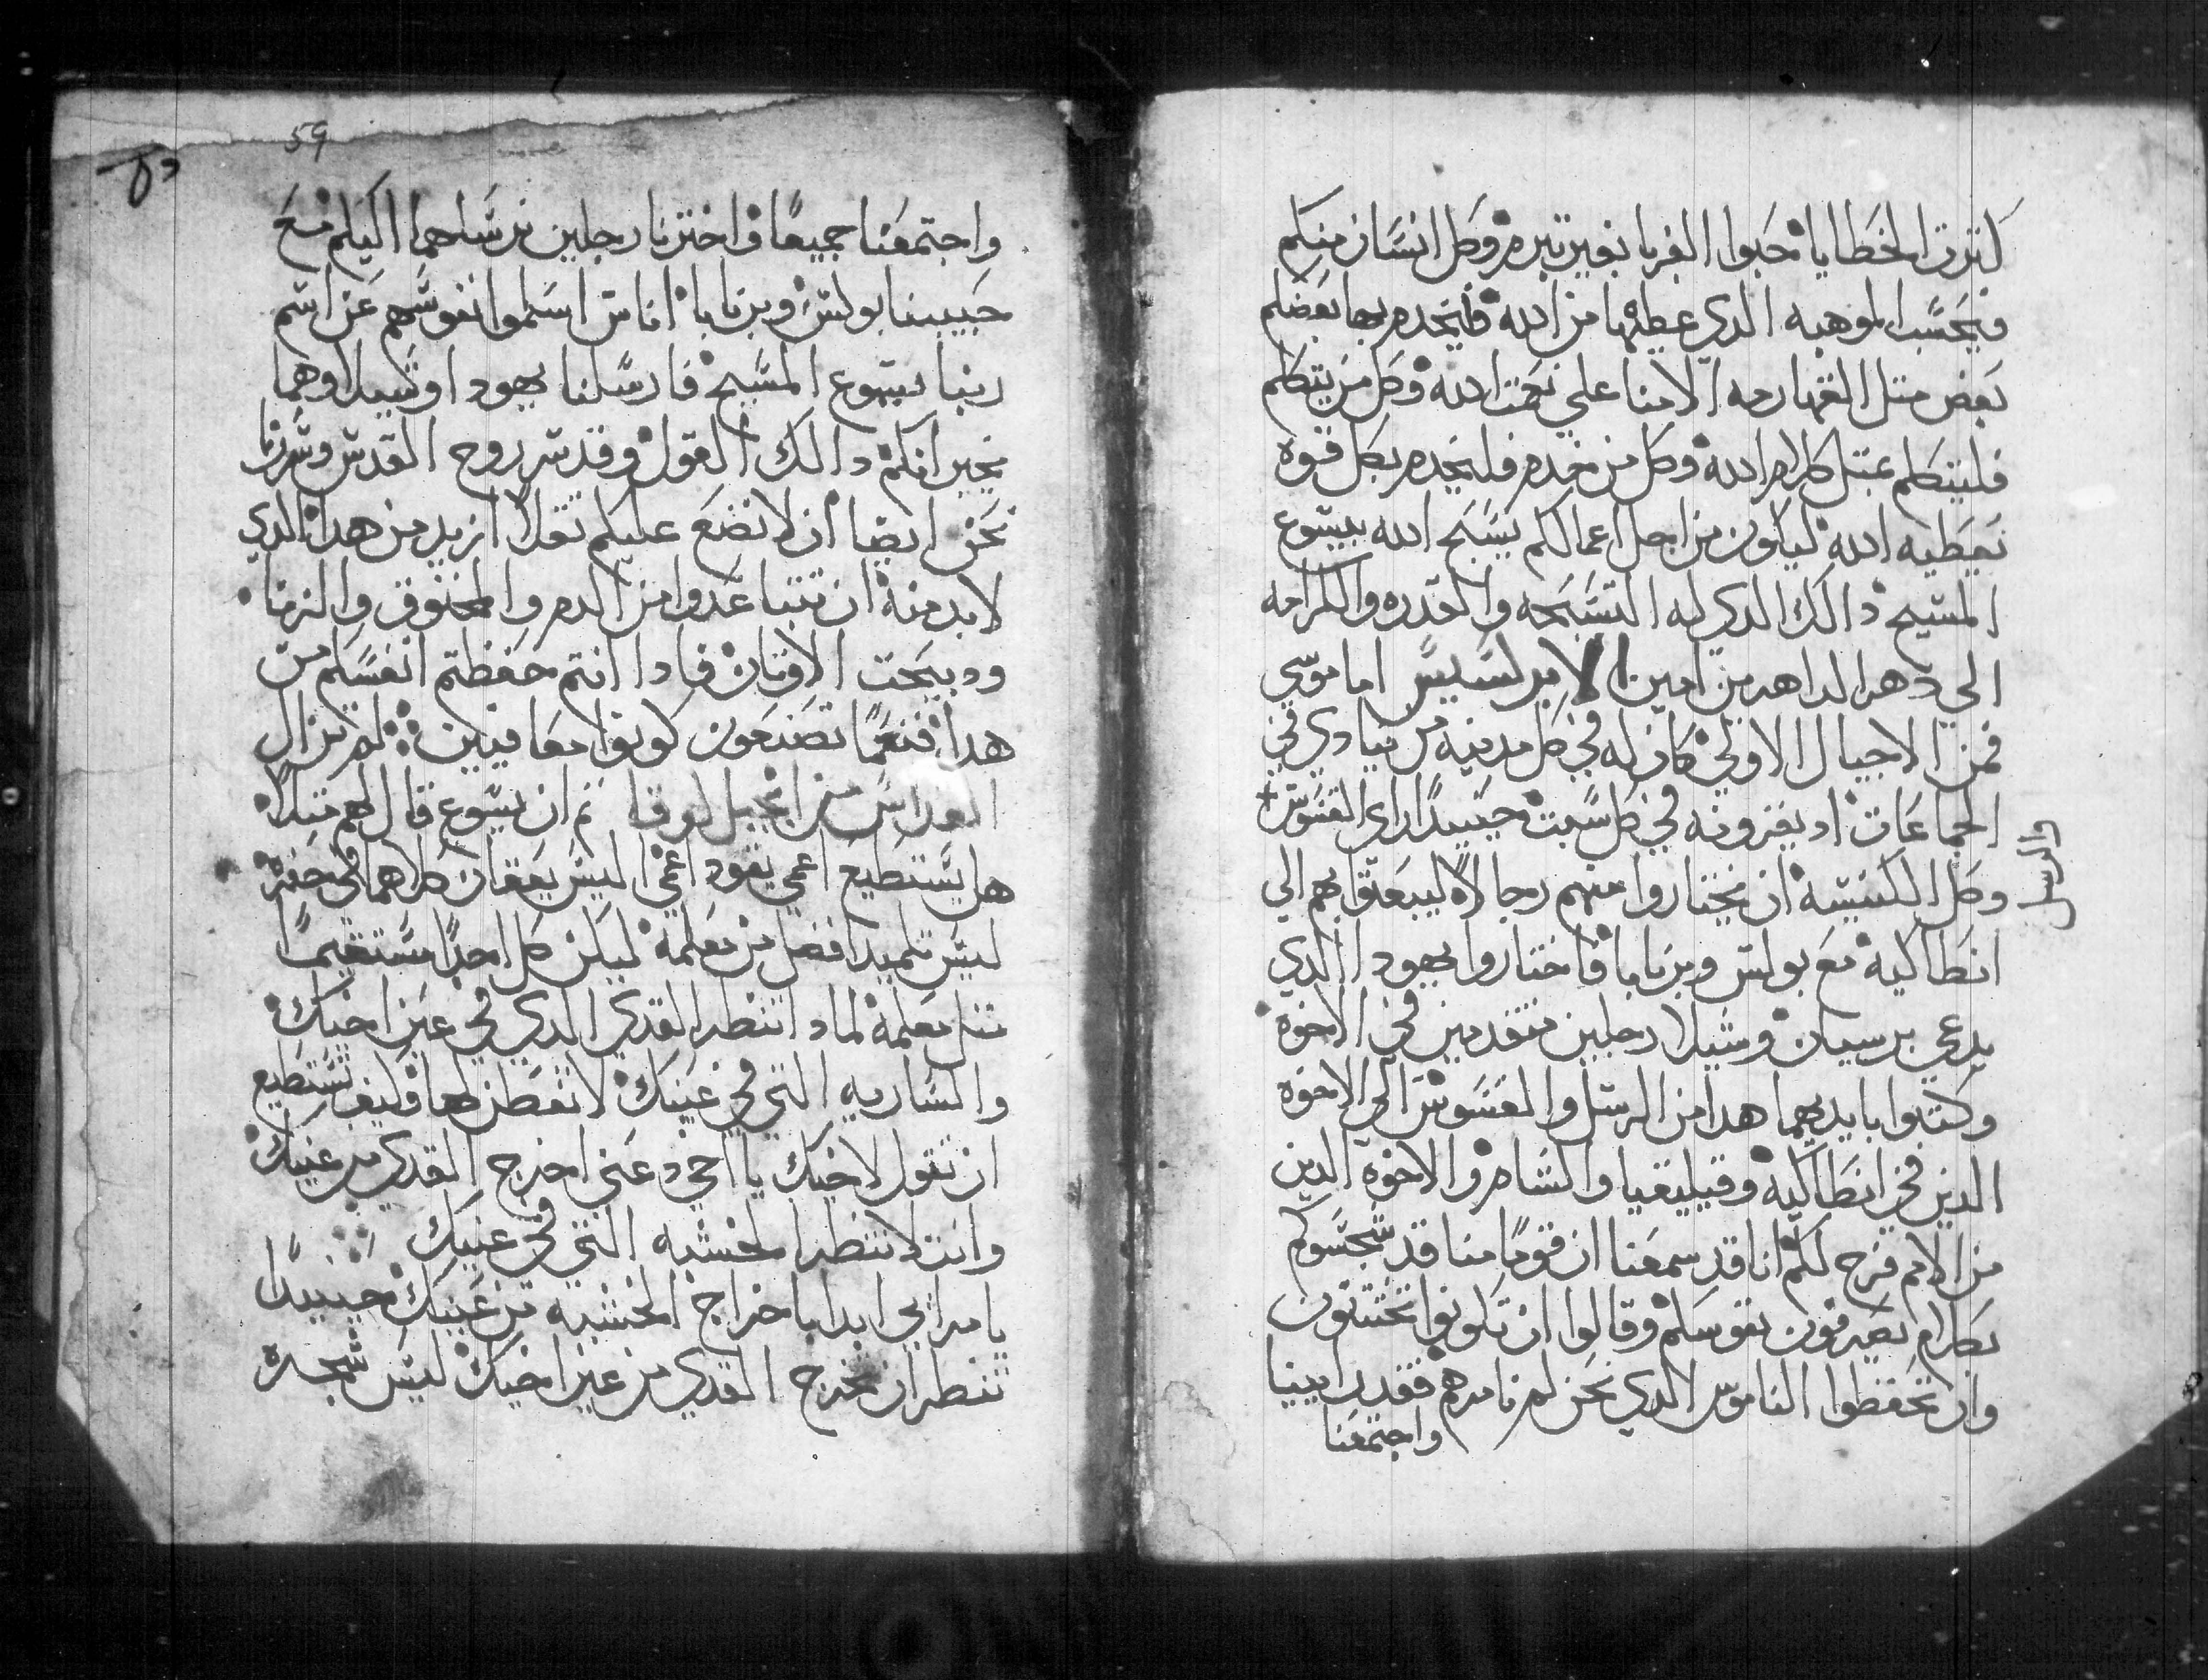 كترة الخطايا حبوا الغربا بغير تبرم وكل انسان منكم
فبحسب الموهبه الدي عطيها من الله فليخدم بها بعضكم
بعض متل القهارمه الامنا علي نعمت الله وكل من يتكلم
فليتكلم بمتل كلام الله وكل من خدم فليخدم بكل قوه
يعطيه الله ليكون من اجل اعمالكم يسبح الله بيسوع
المسيح دالك الدي له التسبحه والقدره والكرامه
الي دهر الداهرين امين الابركسيس اما موسي
فمن الاجيال الاولي كان له في كل مدينه من ينادي في
الجماعات اد يقرونه في كل سبت حينيدا راي القسوس
والرسل
وكل الكنيسه ان يختاروا منهم رجالا ليبعتوا بهم الي
انطاكيه مع بولس وبرنابا فاختاروا يهودا الدي
يدعي برسبان وشيلا رجلين متقدمين في الاخوه
وكتبوا بايديهما هدا من الرسل والقسوس الي الاخوه
الدين في انطاكيه وقيليقيا والشام والاخوه الدين
من الامم فرح لكم انا قد سمعنا ان قوما منا قد شجسوكم
بكلام يصرفون نفوسكم وقالوا ان تكونوا تختتنون
وان تحفظوا الناموس الدي نحن لم نامرهم فقد راينيا
واجتمعنا
59
واجتمعنا جميعا واخترنا رجلين نرسلهما اليكم مع
حبيبينا بولس وبرنابا اناس اسلموا نفوسهم عن اسم
ربنا يسوع المسيح فارسلنا يهودا وشيلا وهما
يخبرانكم دالك القول وقد سر روح القدس وسررنا
نحن ايضا ان لا نضع عليكم تقلا ازيد من هدا الدي
لابد منه ان تتباعدوا من الدم والمخنوق والزنا
ودبيحت الاوتان فادا انتم حفظتم انفسكم من
هدا فنعما تصنعون كونوا معافيين لم تزال
القداس من انجيل لوقا تم ان يسوع قال لهم متلا
هل يستطيع اعمي يقود اعمي اليس يقعان كلاهما في حفره
ليس تلميد افضل من معلمه ليكن كل احدا مستقيما
متل معلمه لمادا تنظر القدي الدي في عين اخيك
والساريه التي في عينك لا تفطن لها وكيف تستطيع
ان تقول لاخيك يا اخي دعني اخرج القدي من عينك
وانت لا تنظر الخشبه التي في عينيك
يا مرايي ابدا باخراج الخشبه من عينك حينيدا
تنظر ان تخرج القدي من عين اخيك ليس شجره